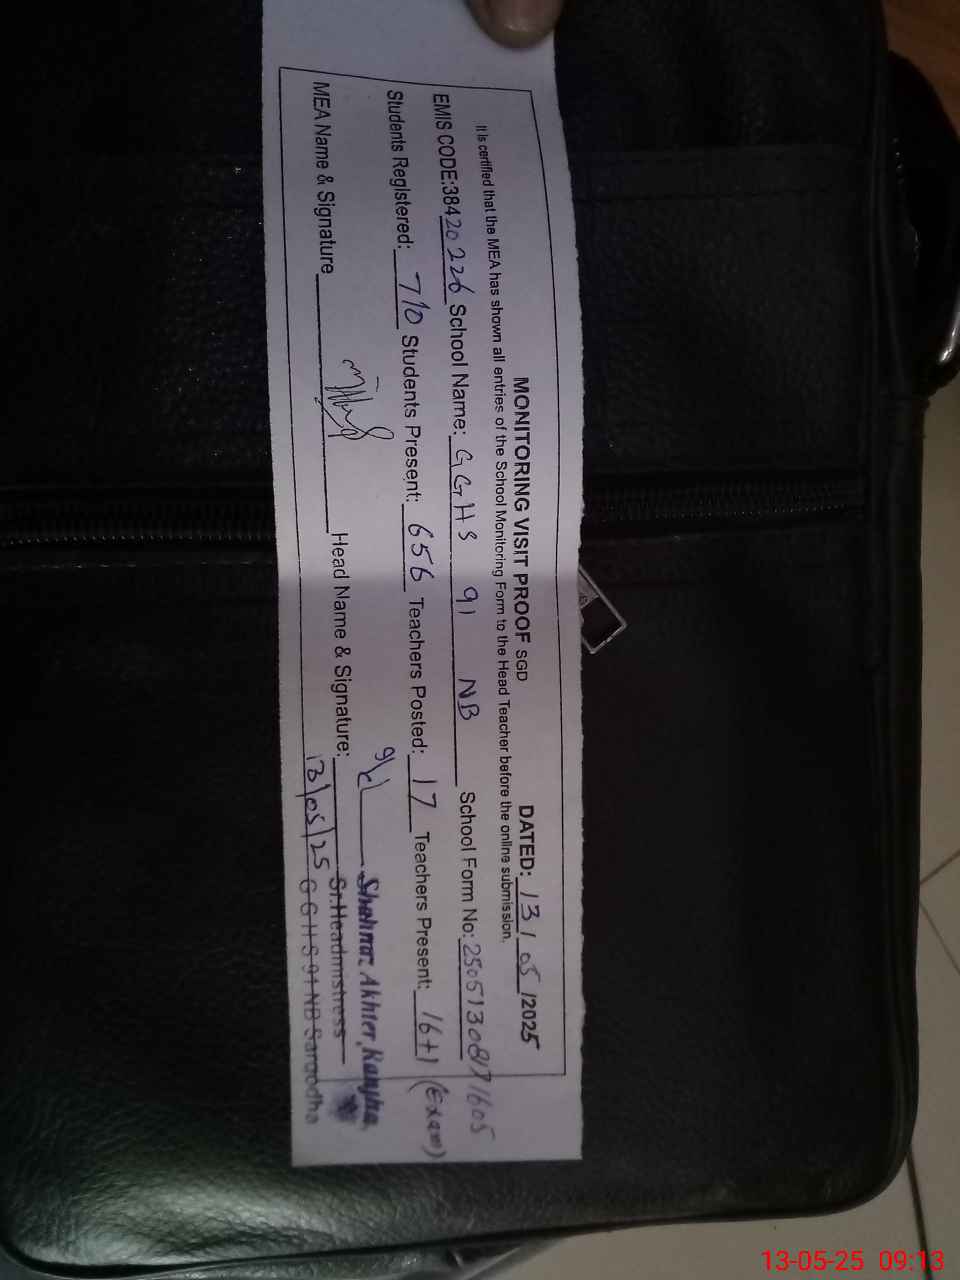 MONITORING VISIT PROOF SGD DATED: 13/05/2025
It is certified that the MEA has shown all entries of the School Monitoring Form to the Head Teacher before the online submission.
EMIS CODE:38420226 School Name: GGHS 91 NB School Form No: 2505130871605
Students Registered: 710 Students Present: 656 Teachers Posted: 17 Teachers Present: 16+1 (Exam)
MEA Name & Signature Head Name & Signature:
Shahnaz Akhter Ranjha
Sr. Headmistress
13/05/25 GGHS 91 NB Sargodha
13-05-25 09:13